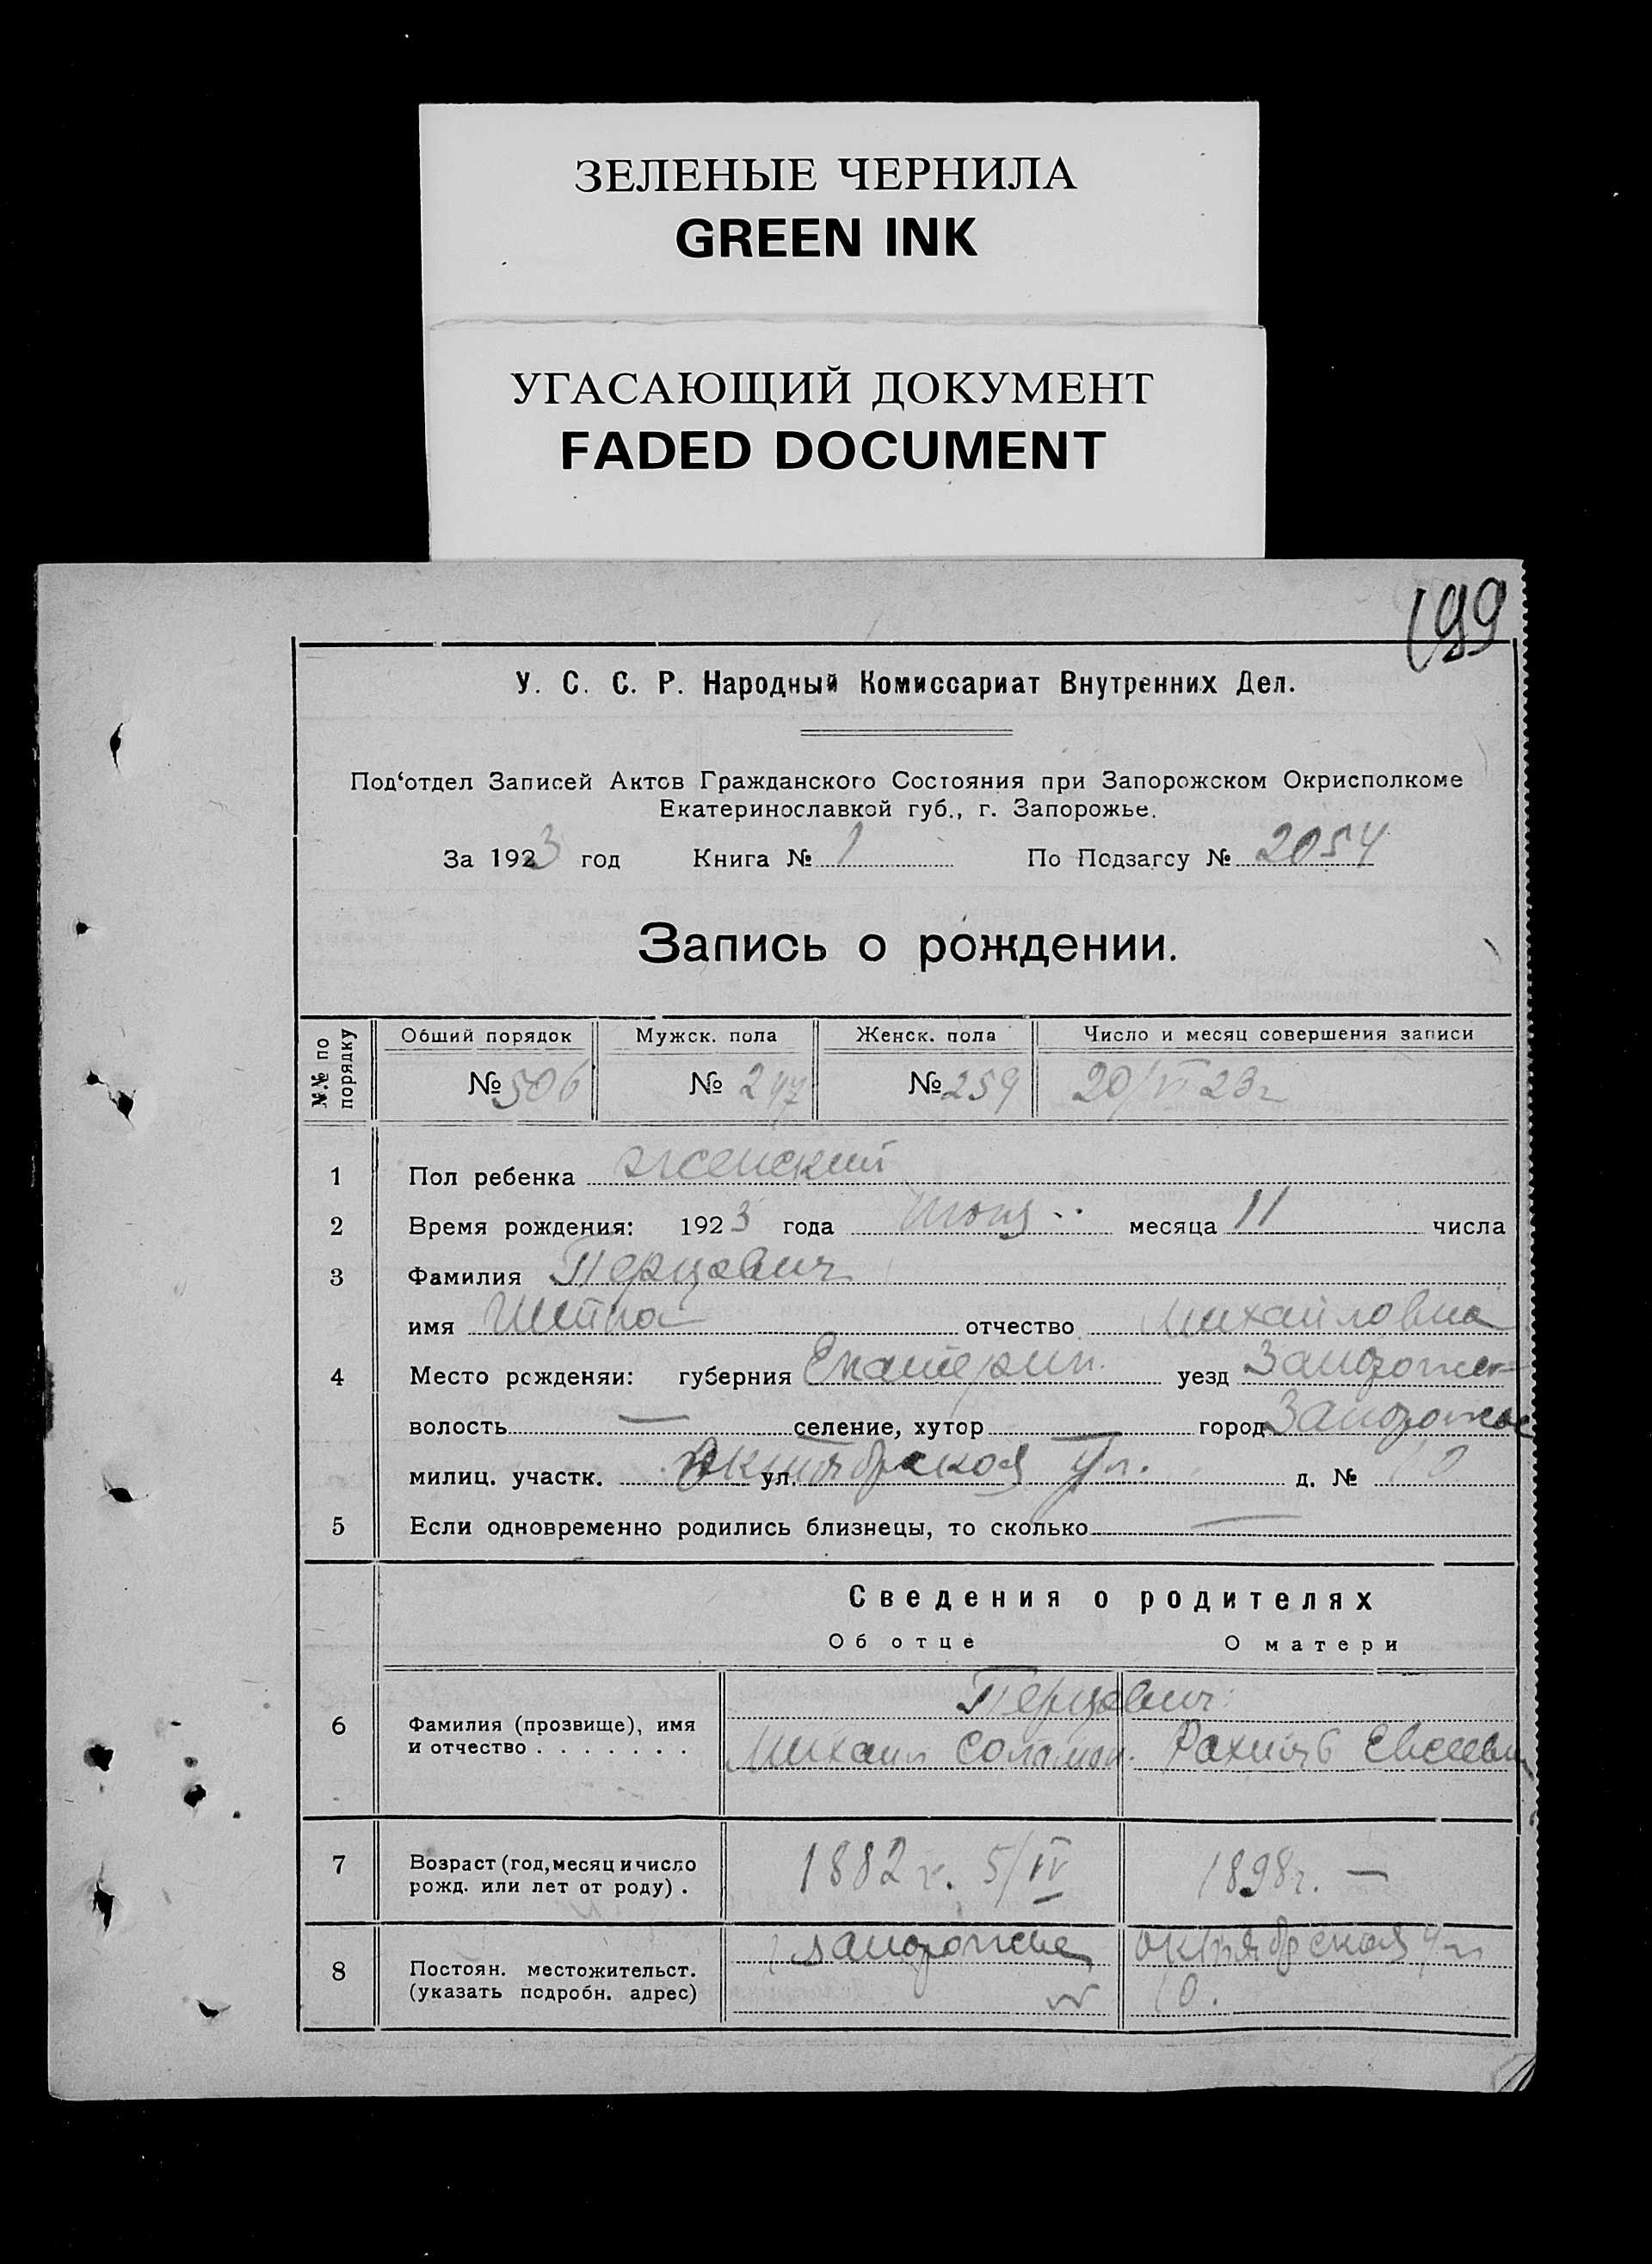 ЗЕЛЕНЫЕ ЧЕРНИЛА
GREEN INK
УГАСАЮЩИЙ ДОКУМЕНТ
FADED DOCUMENT
199
У. С. С. Р. Народный Комиссариат Внутренних Дел.
Под‘отдел Записей Актов Гражданского Состояния при Запорожском Окрисполкоме
Екатеринославкой губ., г. Запорожье.
За 1923 год Книга № 1 По Подзагсу № 2054
Запись о рождении.
№№ по порядку Общий порядок Мужск. пола Женск. пола Число и месяц совершения записи
№ 506 № 247 № 259 20/VI 23г
1 Пол ребенка женский
2 Время рождения: 1923 года Июня месяца 11 числа
3 Фамилия Перцович
имя отчество Михайловна
4 Место рожденяи: губерния Екатерин. уезд Запорож
волость — селение, хутор город Запорожье
милиц. участк. ул. Октябрская ул. д. № 10
5 Если одновременно родились близнецы, то сколько —
Сведения о родителях
Об отце О матери
Перцович
6 Фамилия (прозвище), имя
и отчество . . . . . . . Михаил Соломон. Рахиль Евсеевн
7 Возраст (год, месяц и число
рожд. или лет от роду) . 1882 г. 5/IV 1898 г. —
8 Постоян. местожительст. Запорожье Октябрская ул
(указать подробн. адрес) № 10.